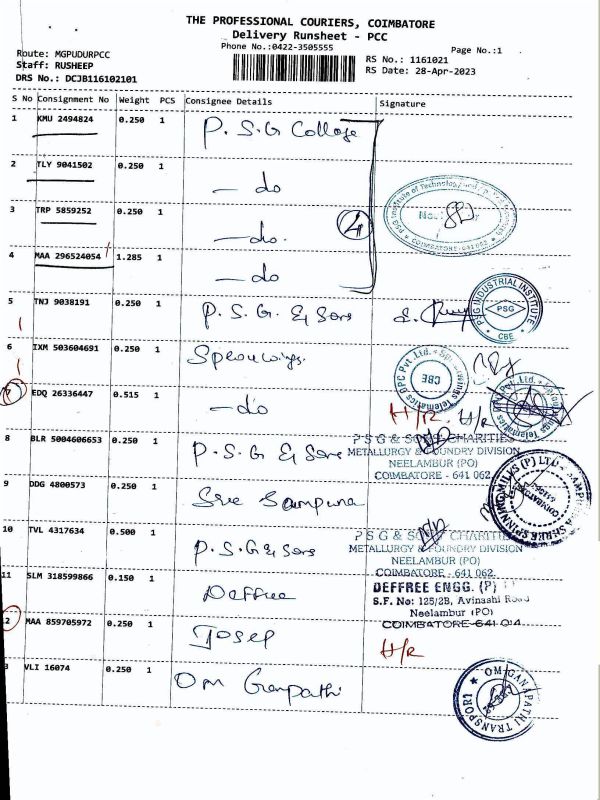 THE PROFESSIONAL COURIERS, COIMBATORE
Delivery Runsheet - PCC
Phone No.:0422-3505555
Page No.:1
Route: MGPUDURPCC
Staff: RUSHEEP
DRS No.: DCJB116102101
RS No.: 1161021
RS Date: 28-Apr-2023
S No Consignment No Weight PCS Consignee Details Signature
1 KMU 2494824 0.250 1 P.S.G College
2 TLY 9041502 0.250 1 — do
3 TRP 5859252 0.250 1 — do.
4
4 MAA 296524054 1.285 1 — do
COIMBATORE-641 062
5 TNJ 9038191 0.250 1 P.S.G. & Sons
PSG INDUSTRIAL INSTITUTE
PSG
CBE
6 IXM 503604691 0.250 1
CBE
7 EDQ 26336447 0.515 1 — do
H/R H/R
8 BLR 5004606653 0.250 1 P.S.G & Sons
P S G & SONS CHARITIES
METALLURGY & FOUNDRY DIVISION
NEELAMBUR (PO)
COIMBATORE - 641 062
9 DDG 4800573 0.250 1 Sree Sampurna
10 TVL 4317634 0.500 1 P.S.G & Sons
P S G & SONS CHARITIES
METALLURGY & FOUNDRY DIVISION
NEELAMBUR (PO)
COIMBATORE - 641 062
11 SLM 318599866 0.150 1 Deffree
DEFFREE ENGG. (P)
S.F. No: 125/2B, Avinashi Road
Neelambur (PO)
COIMBATORE-641 014
12 MAA 859705972 0.250 1
H/R
3 VLI 16074 0.250 1 Om Ganpathi
OM GANAPATRI TRANSPORT